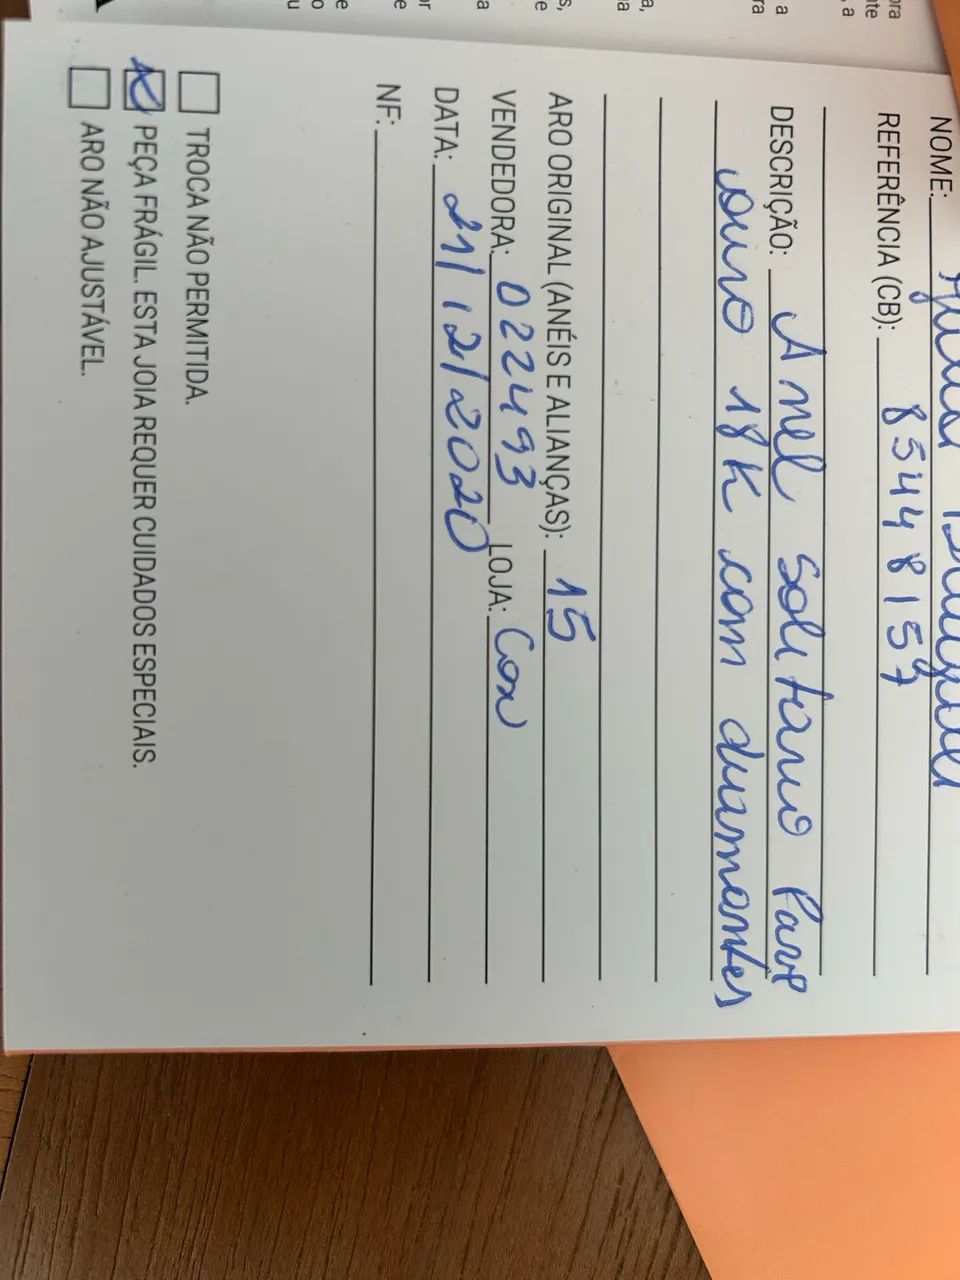 NOME:
REFERÊNCIA (CB): 85448157
DESCRIÇÃO: Anel Solitario Pave
ouro 18K com diamantes
ARO ORIGINAL (ANÉIS E ALIANÇAS): 15
VENDEDORA: 022493 LOJA: Cox
DATA: 21/12/2020
NF:
TROCA NÃO PERMITIDA.
PEÇA FRÁGIL. ESTA JOIA REQUER CUIDADOS ESPECIAIS.
ARO NÃO AJUSTÁVEL.